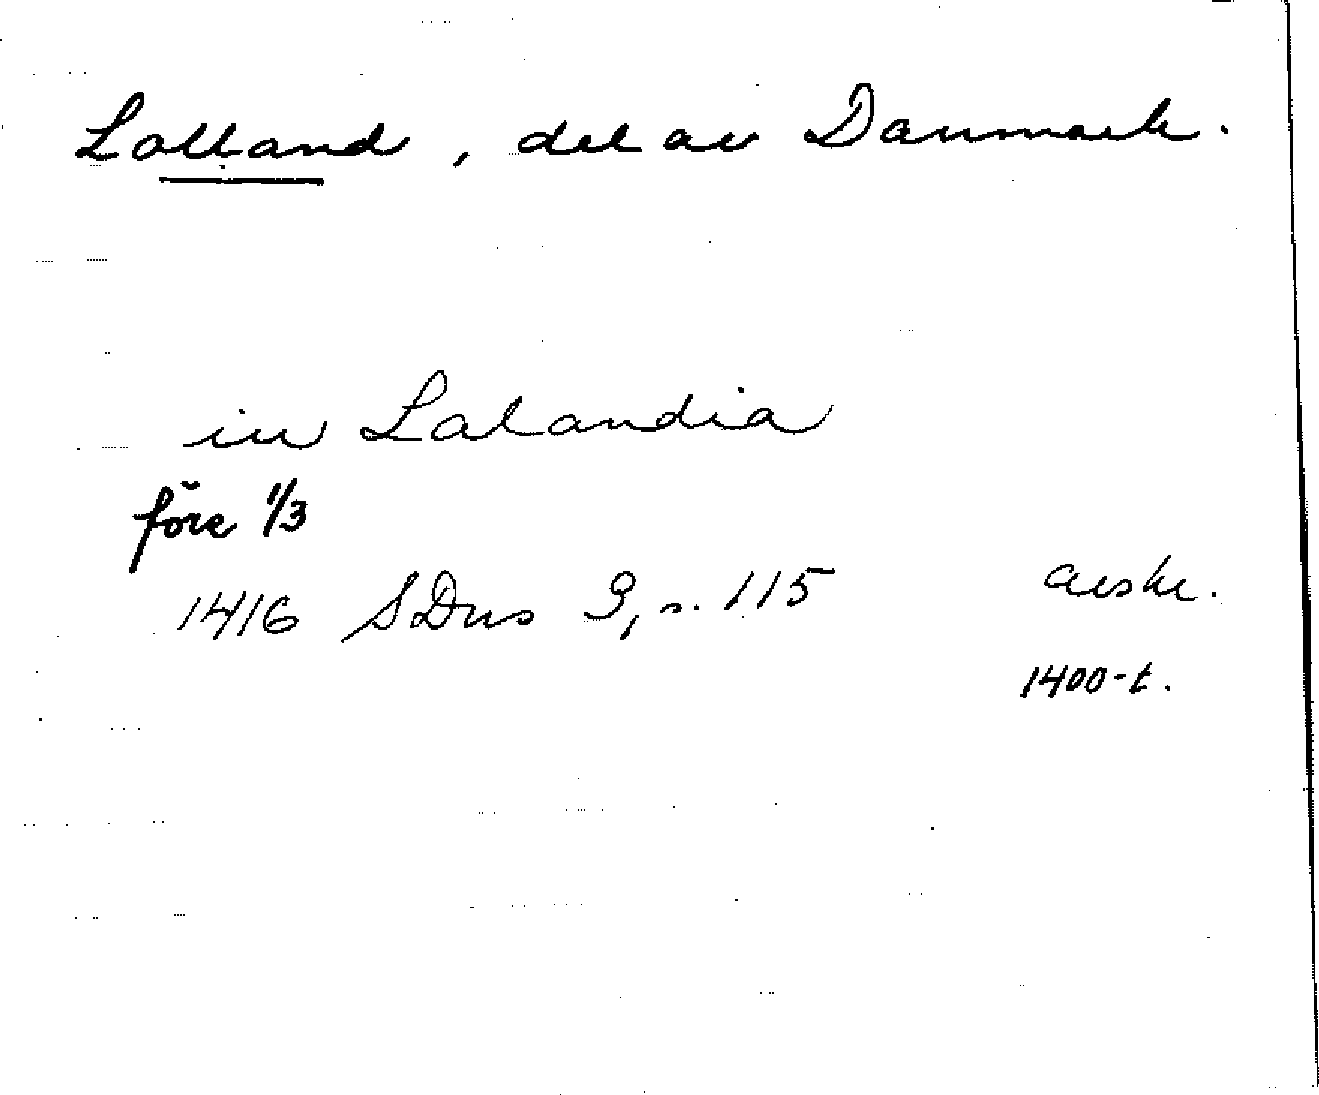 Lolland, del av Danmark.
in Lalandia
före 1/3
1416 SDns 3, s. 115 avskr.
1400-t.